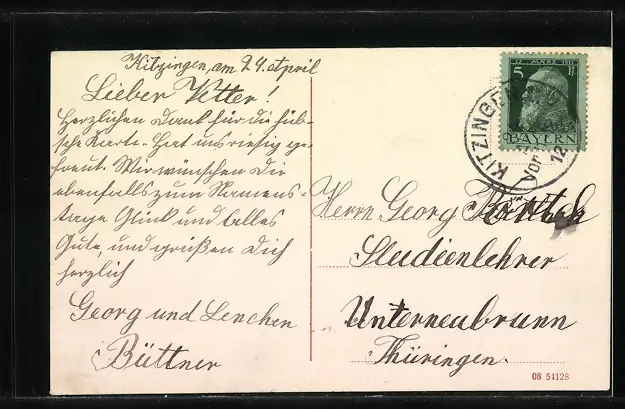 Kitzingen, am 24. April
Lieber Vetter!
Herzlichen Dank für die hüb-
sche Karte. Hat uns riesig ge-
freut. Wir wünschen Dir
ebenfalls zum Namens-
tage Glück und alles
Gute, und grüßen Dich
herzlich
Georg und Lenchen
Büttner
12. MÄRZ 1911
5 Pf
BAYERN
KITZINGEN
Vor
12
Herrn Georg
Studienlehrer
Unterneubrunn
Thüringen.
08 54128